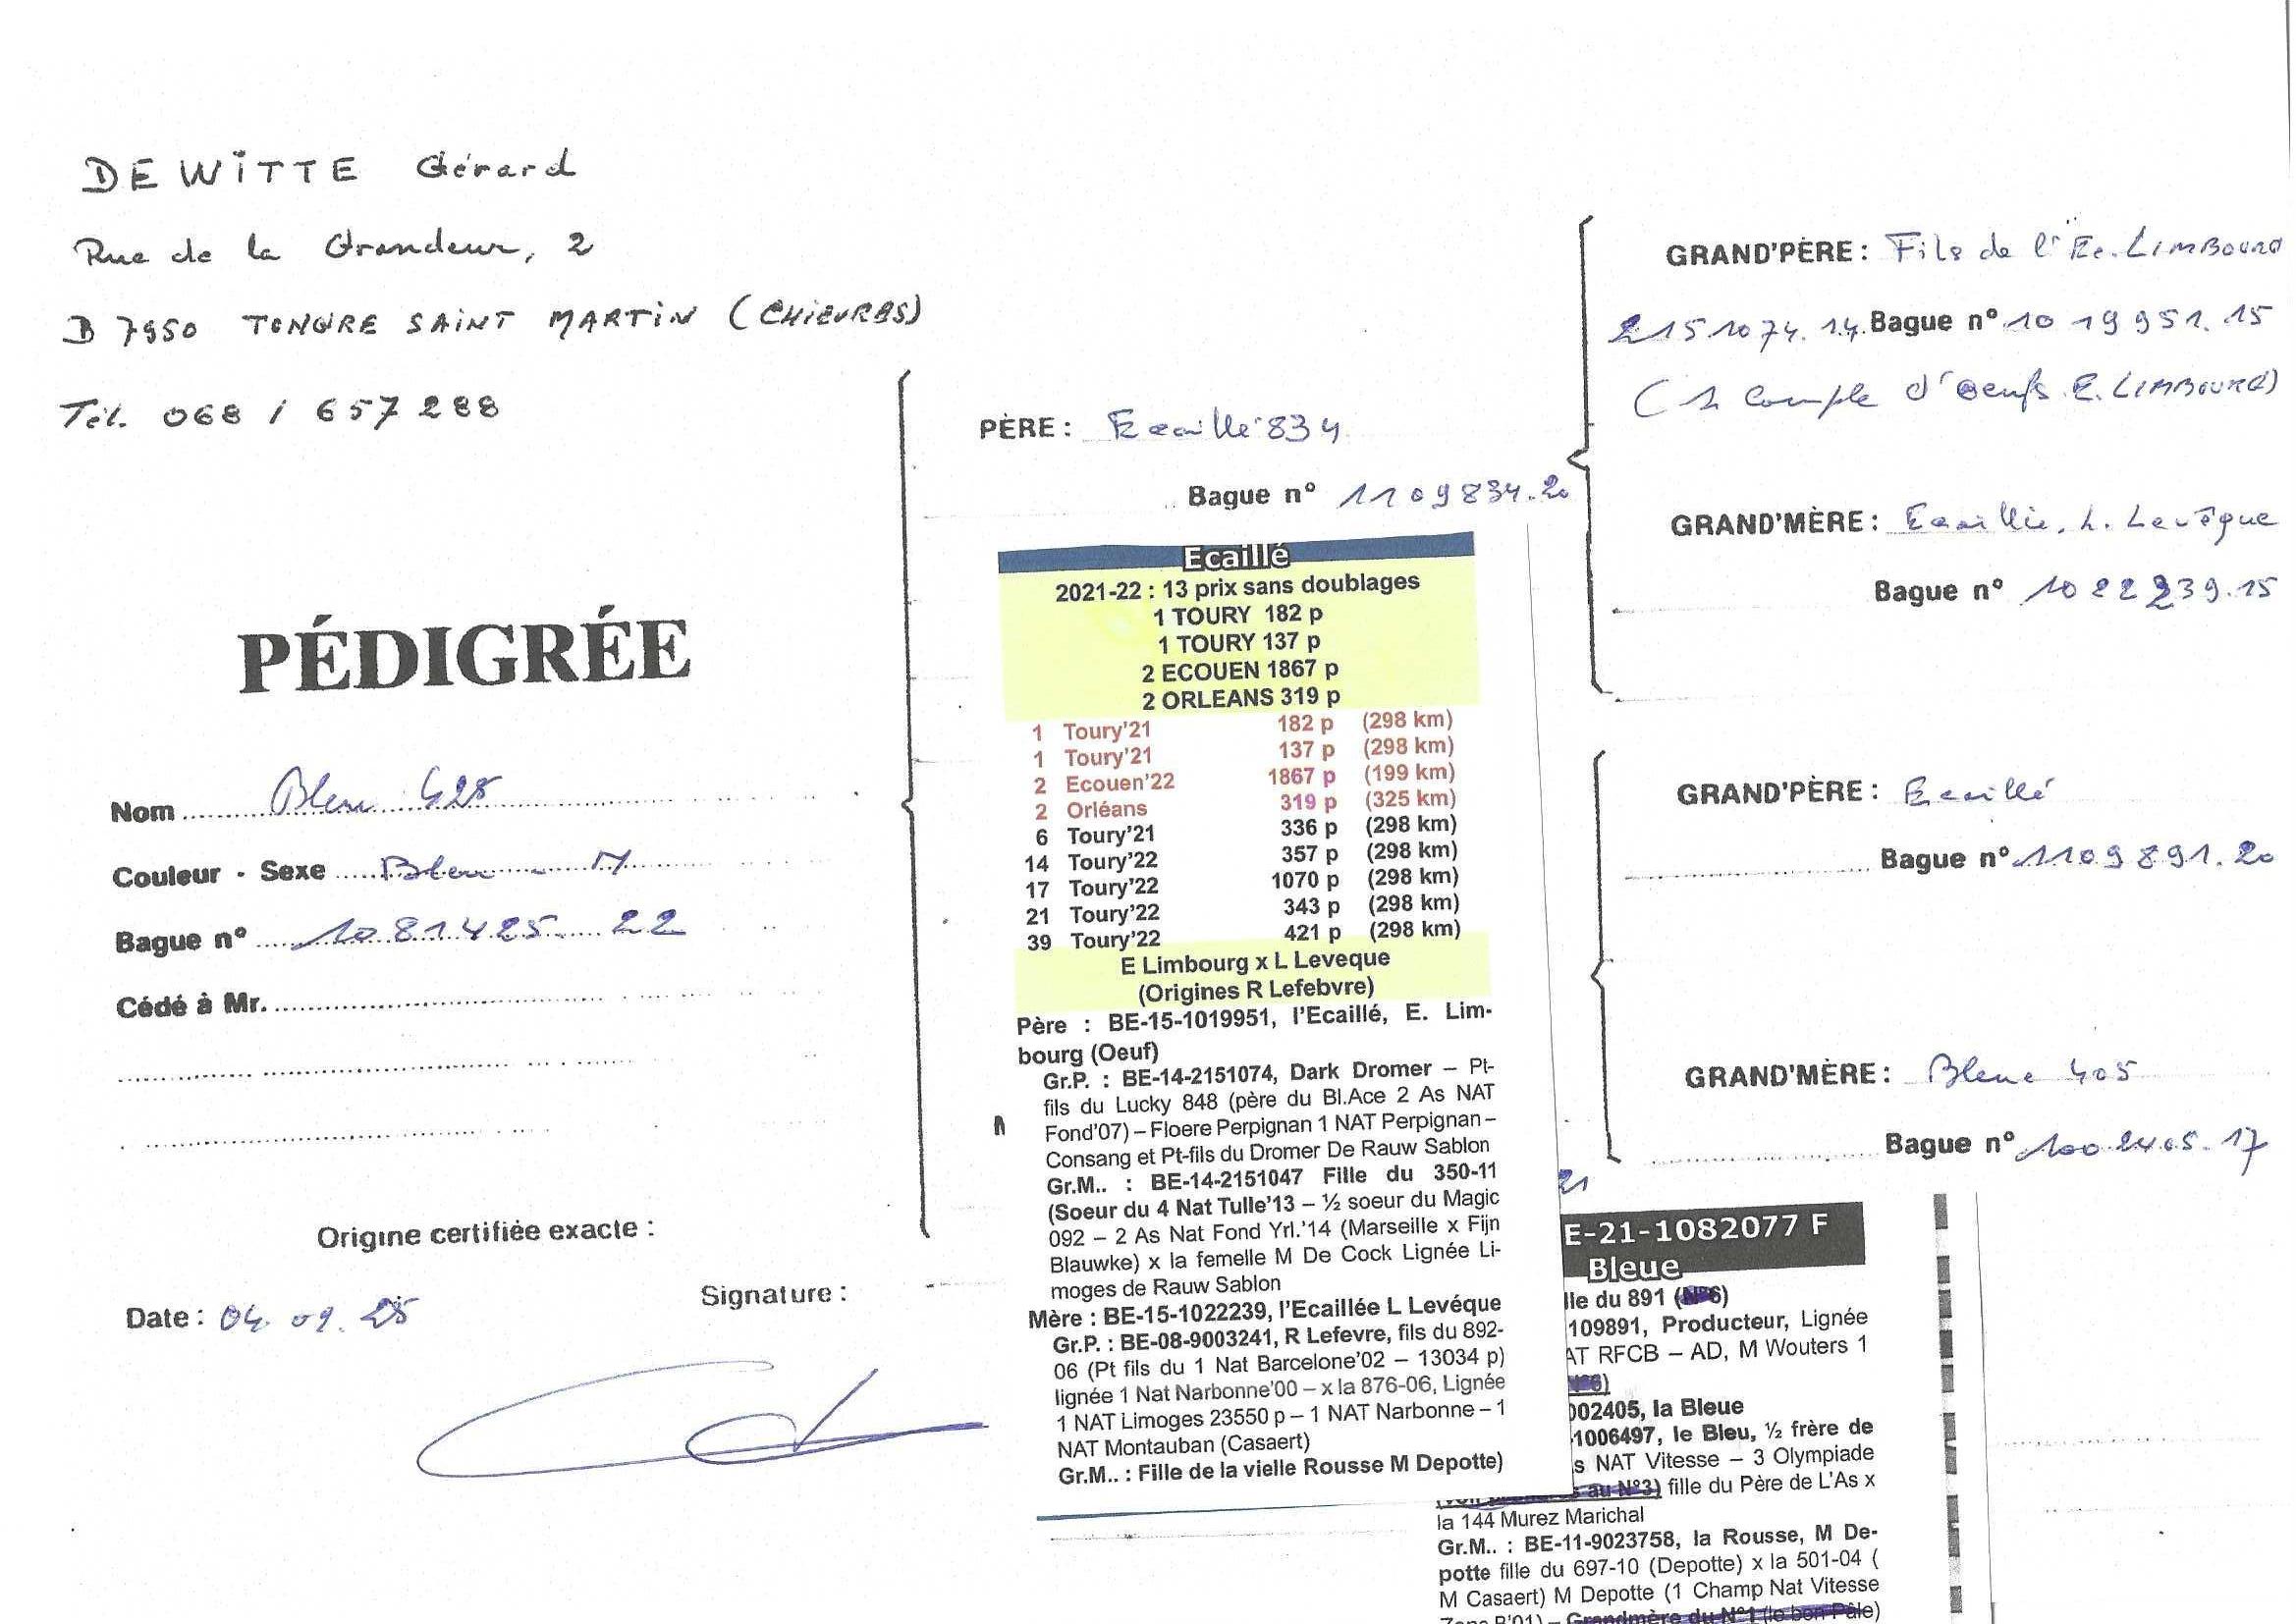 DEWITTE Gérard
Rue de la Grandeur, 2
B 7950 TONGRE SAINT MARTIN (CHIEVRES)
Tél. 068 / 657288
PÉDIGRÉE
Nom Bleu 425
Couleur - Sexe Bleu - M
Bague nº 1081425. 22
Cédé à Mr.
Origine certifiée exacte :
Date : 04. 09. 25
Signature :
PÈRE : Ecaillé 834
Bague nº 1109834.20
Ecaillé
2021-22 : 13 prix sans doublages
1 TOURY 182 p
1 TOURY 137 p
2 ECOUEN 1867 p
2 ORLEANS 319 p
1 Toury'21 182 p (298 km)
1 Toury'21 137 p (298 km)
2 Ecouen'22 1867 p (199 km)
2 Orléans 319 p (325 km)
6 Toury'21 336 p (298 km)
14 Toury'22 357 p (298 km)
17 Toury'22 1070 p (298 km)
21 Toury'22 343 p (298 km)
39 Toury'22 421 p (298 km)
E Limbourg x L Leveque
(Origines R Lefebvre)
Père : BE-15-1019951, l'Ecaillé, E. Lim-
bourg (Oeuf)
Gr.P. : BE-14-2151074, Dark Dromer – Pt-
fils du Lucky 848 (père du Bl.Ace 2 As NAT
Fond'07) – Floere Perpignan 1 NAT Perpignan –
Consang et Pt-fils du Dromer De Rauw Sablon
Gr.M.. : BE-14-2151047 Fille du 350-11
(Soeur du 4 Nat Tulle'13 – ½ soeur du Magic
092 – 2 As Nat Fond Yrl.'14 (Marseille x Fijn
Blauwke) x la femelle M De Cock Lignée Li-
moges de Rauw Sablon
Mère : BE-15-1022239, l'Ecaillée L Levéque
Gr.P. : BE-08-9003241, R Lefevre, fils du 892-
06 (Pt fils du 1 Nat Barcelone'02 – 13034 p)
lignée 1 Nat Narbonne'00 – x la 876-06, Lignée
1 NAT Limoges 23550 p – 1 NAT Narbonne – 1
NAT Montauban (Casaert)
Gr.M.. : Fille de la vielle Rousse M Depotte)
GRAND'PÈRE : Fils de l'Ec. LIMBOURG
2151074.14. Bague nº 1019951.15
(1 couple d'oeufs E. LIMBOURG)
GRAND'MÈRE : Ecaillée, L. Levêque
Bague nº 1022239.15
GRAND'PÈRE : Ecaillé
Bague nº 1109891.20
GRAND'MÈRE : Bleue 405
Bague nº 1002405.17
21
E-21-1082077 F
Bleue
lle du 891 (N°6)
109891, Producteur, Lignée
AT RFCB – AD, M Wouters 1
N°6)
002405, la Bleue
1006497, le Bleu, ½ frère de
s NAT Vitesse – 3 Olympiade
s au N°3) fille du Père de L'As x
la 144 Murez Marichal
Gr.M.. : BE-11-9023758, la Rousse, M De-
potte fille du 697-10 (Depotte) x la 501-04 (
M Casaert) M Depotte (1 Champ Nat Vitesse
Zone B'01) – Grandmère du N°1 (le bon Pâle)